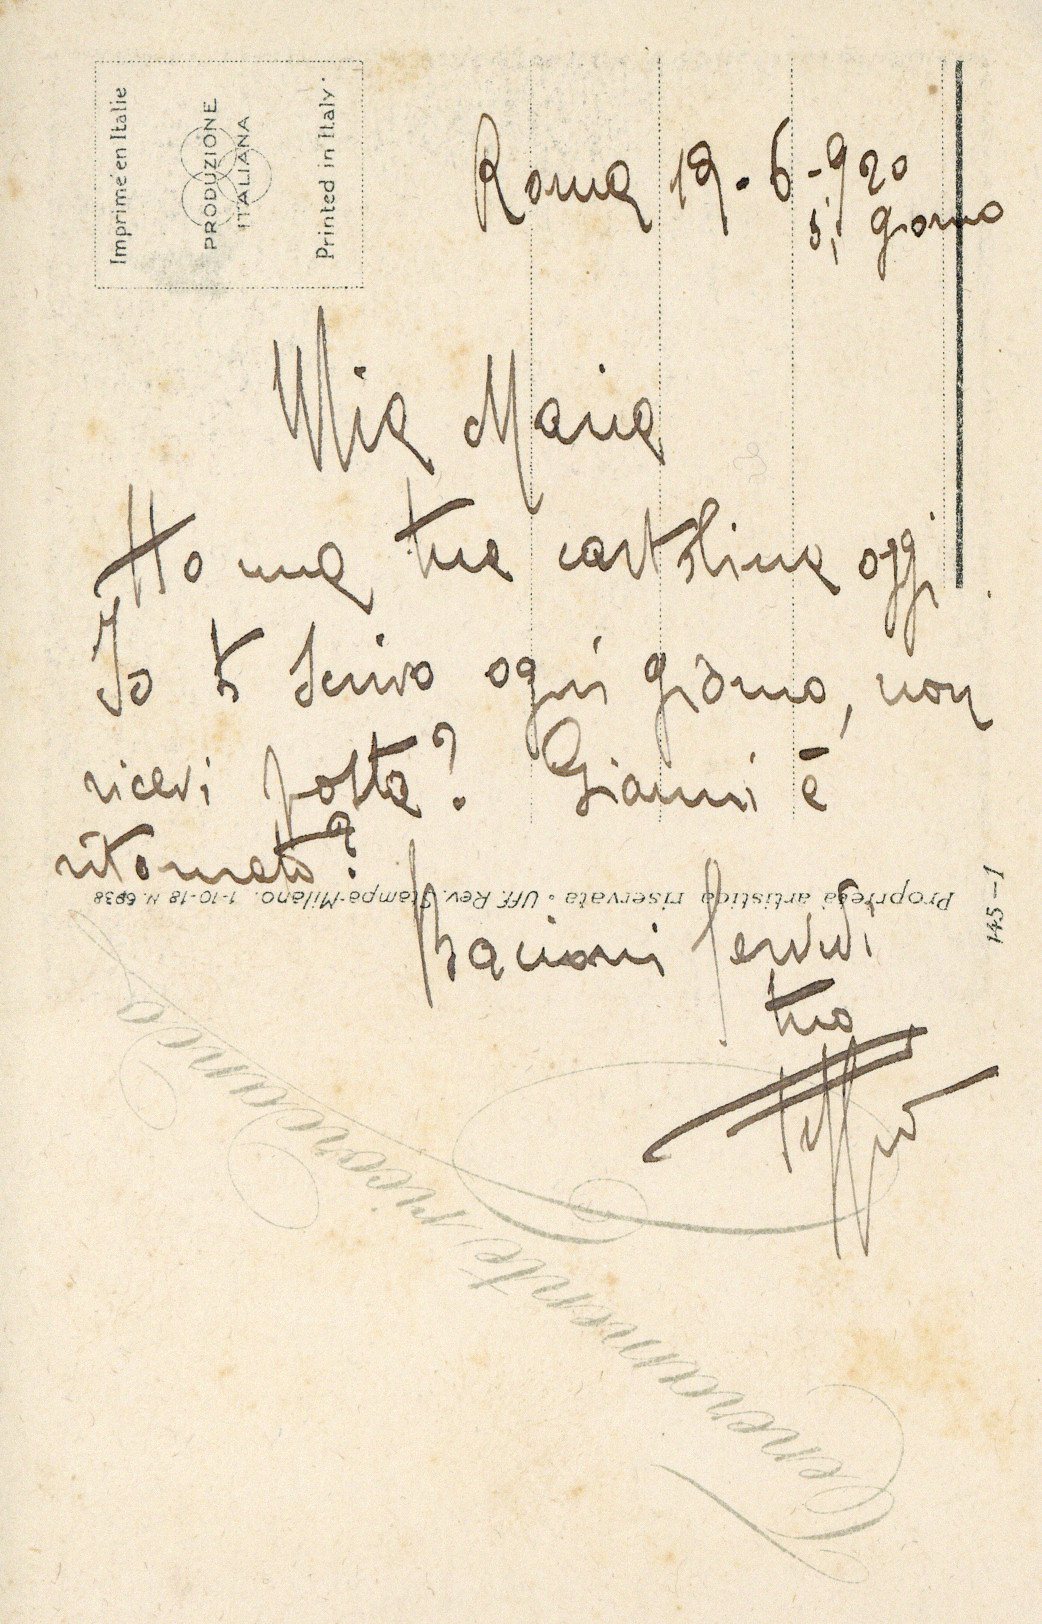 Imprimé en Italie
PRODUZIONE
ITALIANA
Printed in Italy
Roma 19.6-920
5, giorno
Mia Maria
Ho una tua cartolina oggi.
Io ti scrivo ogni giorno, non
ricevi posta? Gianni è
ritornato?
Bacioni fervidi
tuo
Proprietà artistica riservata - Uff. Rev. Stampa-Milano. 1-10-18 N. 6938
145-1
Teneramente ricordando